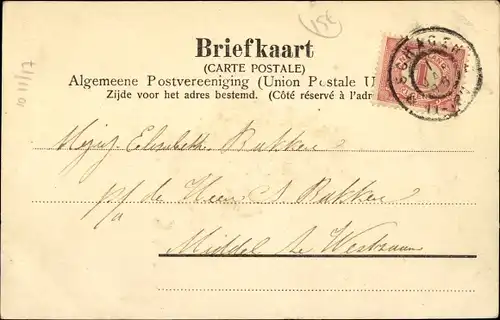 15€
Briefkaart
(CARTE POSTALE)
Algemeene Postvereeniging (Union Postale U
Zijde voor het adres bestemd. (Côté réservé à l'adr
SCHAGEN
Elisabeth Bakken
p/a de Heer Bakken
Middel te Westzaan